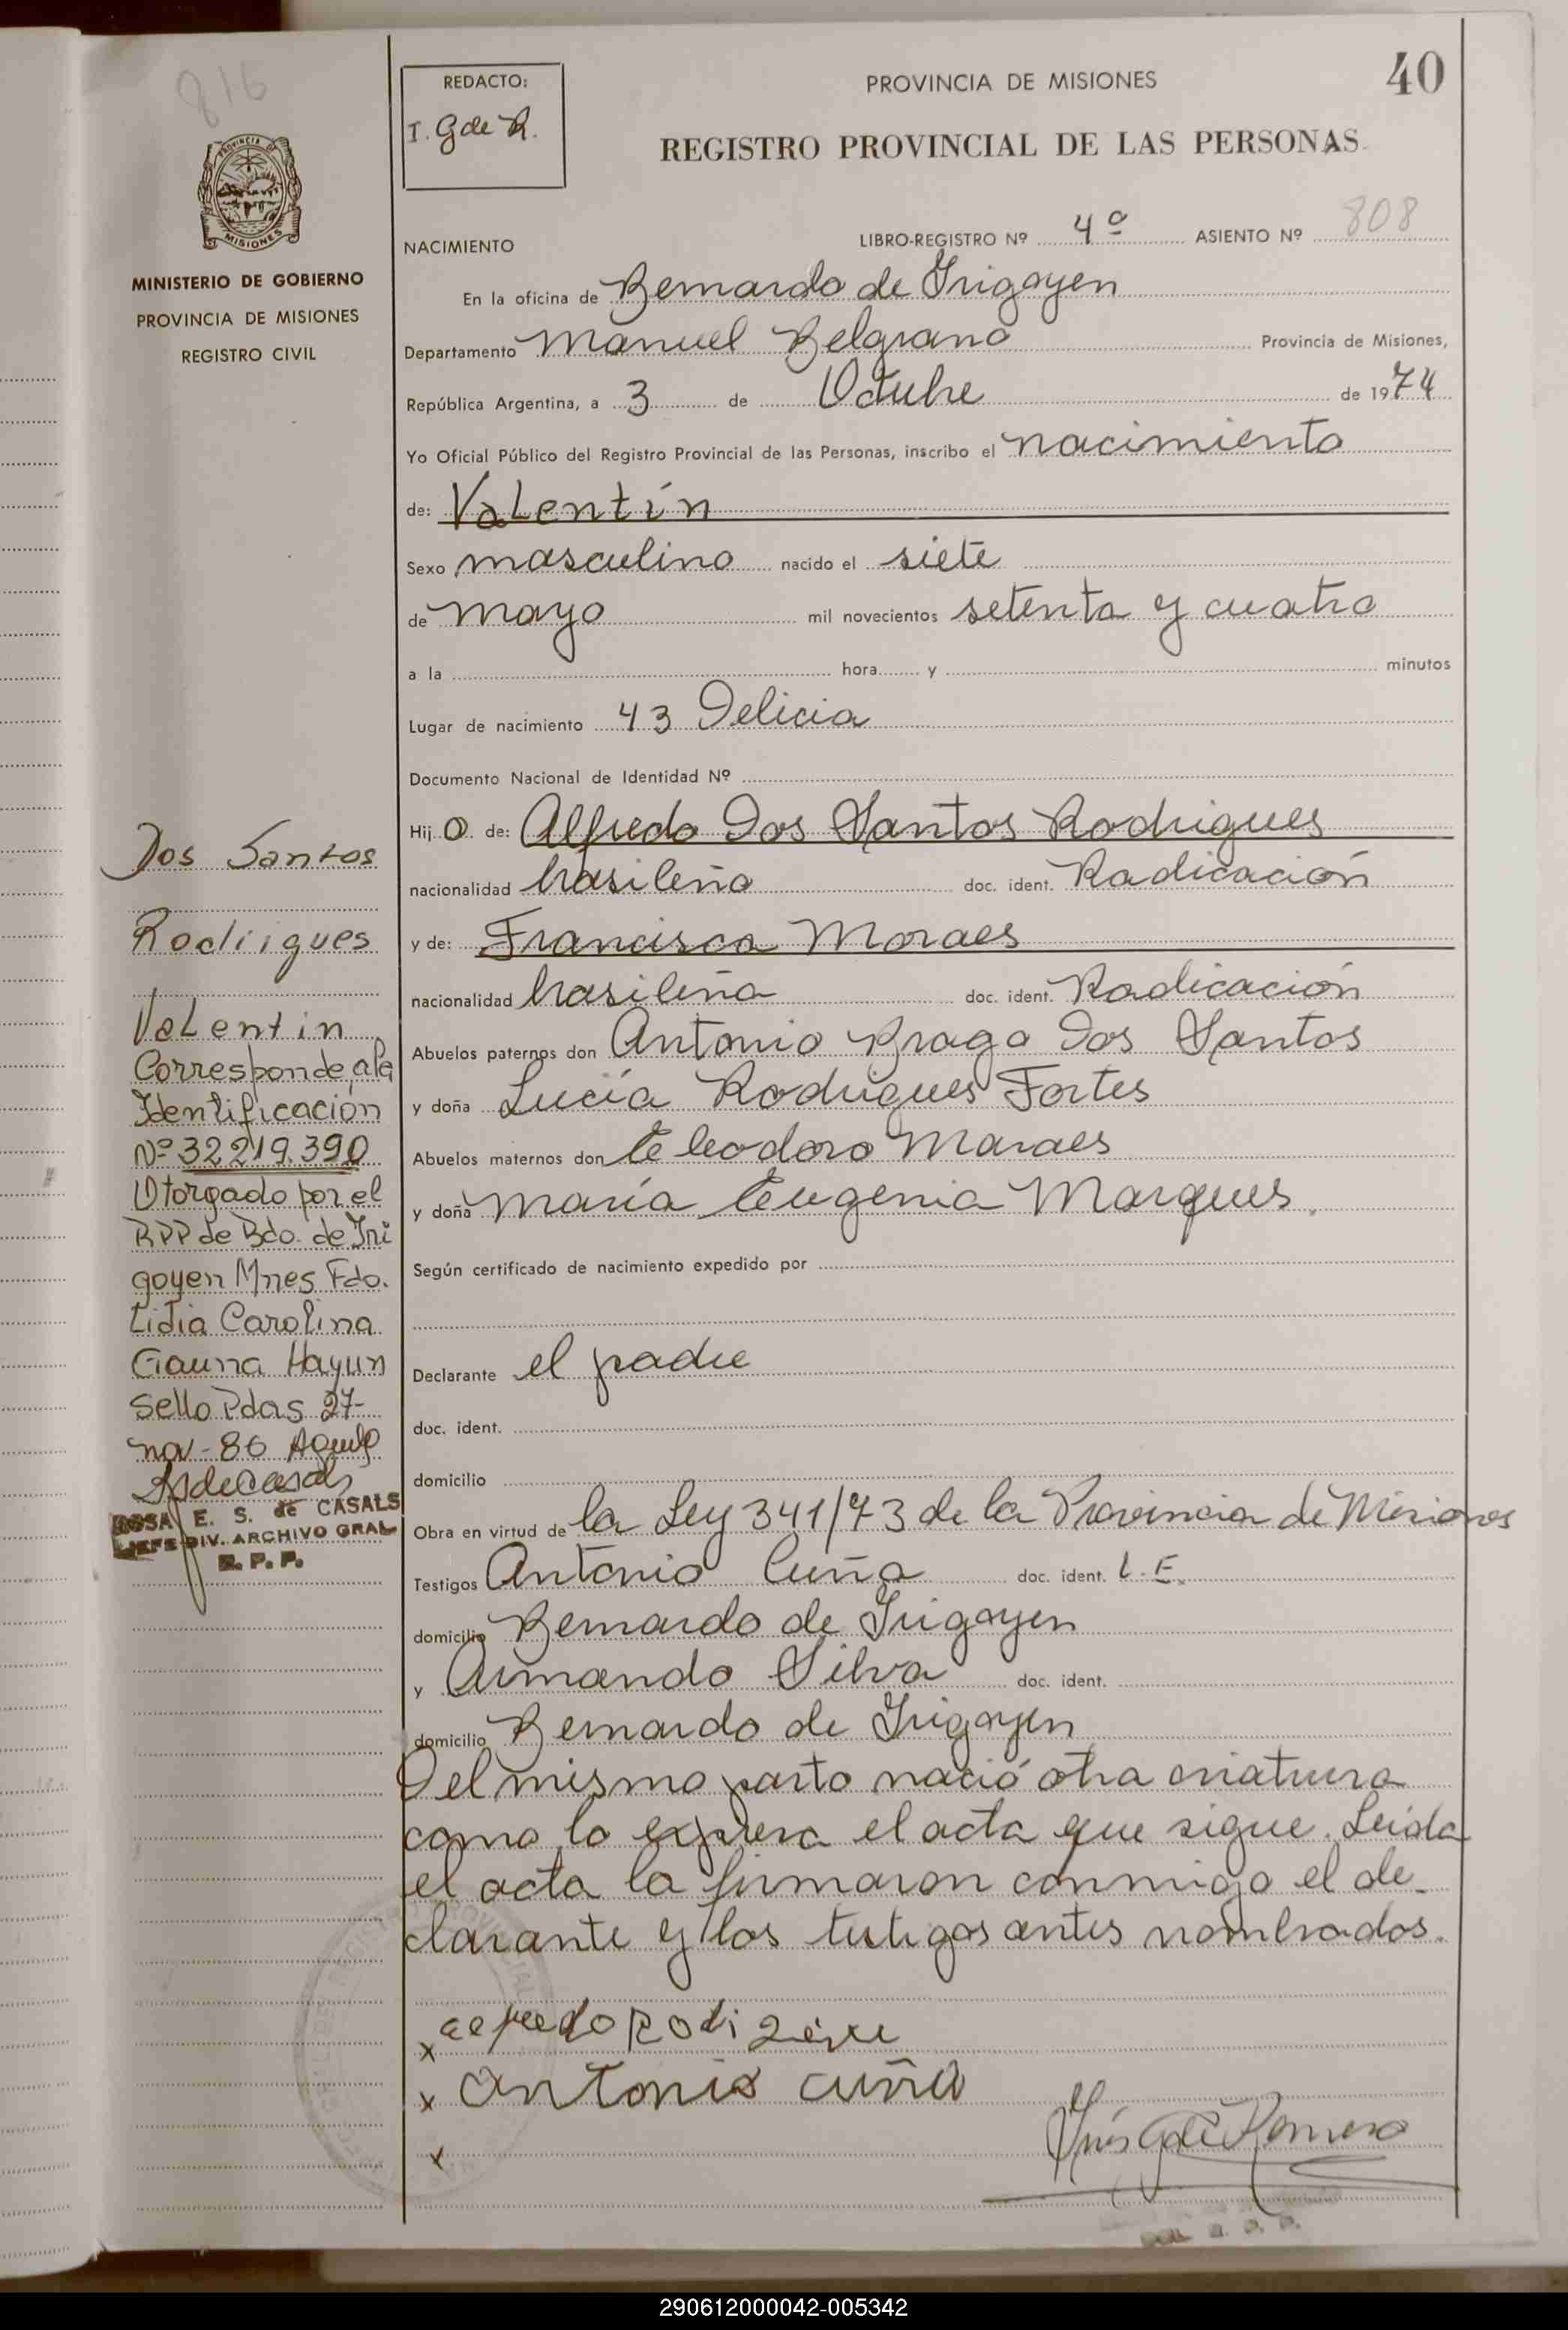 816
REDACTO:
I. G de R.
PROVINCIA DE MISIONES
40
REGISTRO PROVINCIAL DE LAS PERSONAS
PROVINCIA DE
MISIONES
MINISTERIO DE GOBIERNO
PROVINCIA DE MISIONES
REGISTRO CIVIL
NACIMIENTO
LIBRO-REGISTRO Nº 4º ASIENTO Nº 808
En la oficina de Bernardo de Irigoyen
Departamento Manuel Belgrano Provincia de Misiones,
República Argentina, a 3 de Octubre de 1974
Yo Oficial Público del Registro Provincial de las Personas, inscribo el nacimiento
de: Valentín
Sexo masculino nacido el siete
de mayo mil novecientos setenta y cuatro
a la hora y minutos
Lugar de nacimiento 43 Delicia
Documento Nacional de Identidad Nº
Hij o de: Alfredo Dos Santos Rodrigues
nacionalidad brasileño doc. ident. Radicación
y de: Francisca Moraes
nacionalidad brasileña doc. ident. Radicación
Abuelos paternos don Antonio Braga Dos Santos
y doña Lucía Rodrigues Fortes
Abuelos maternos don Eleodoro Moraes
y doña María Eugenia Marques.
Según certificado de nacimiento expedido por
Declarante el padre
doc. ident.
domicilio
Obra en virtud de la Ley 341/73 de la Provincia de Misiones
Testigos Antonio Cuña doc. ident. L.E.
domicilio Bernardo de Irigoyen
y Armando Silva doc. ident.
domicilio Bernardo de Irigoyen
Del mismo parto nació otra criatura
como lo expresa el acta que sigue. Leída
el acta la firmaron conmigo el de-
clarante y los testigos antes nombrados.
x
x Antonio cuña
x
Inés G de Romero
Dos Santos
Rodrigues
Valentin
Corresponde a la
Identificación
Nº 32219.390
Otorgado por el
RPP de Bdo. de Iri
goyen Mnes Fdo.
Lidia Carolina
Gauna Hayun
Sello Pdas 27-
nov-86
ROSA E. S. de CASALS
JEFE DIV. ARCHIVO GRAL
R. P. P.
290612000042-005342